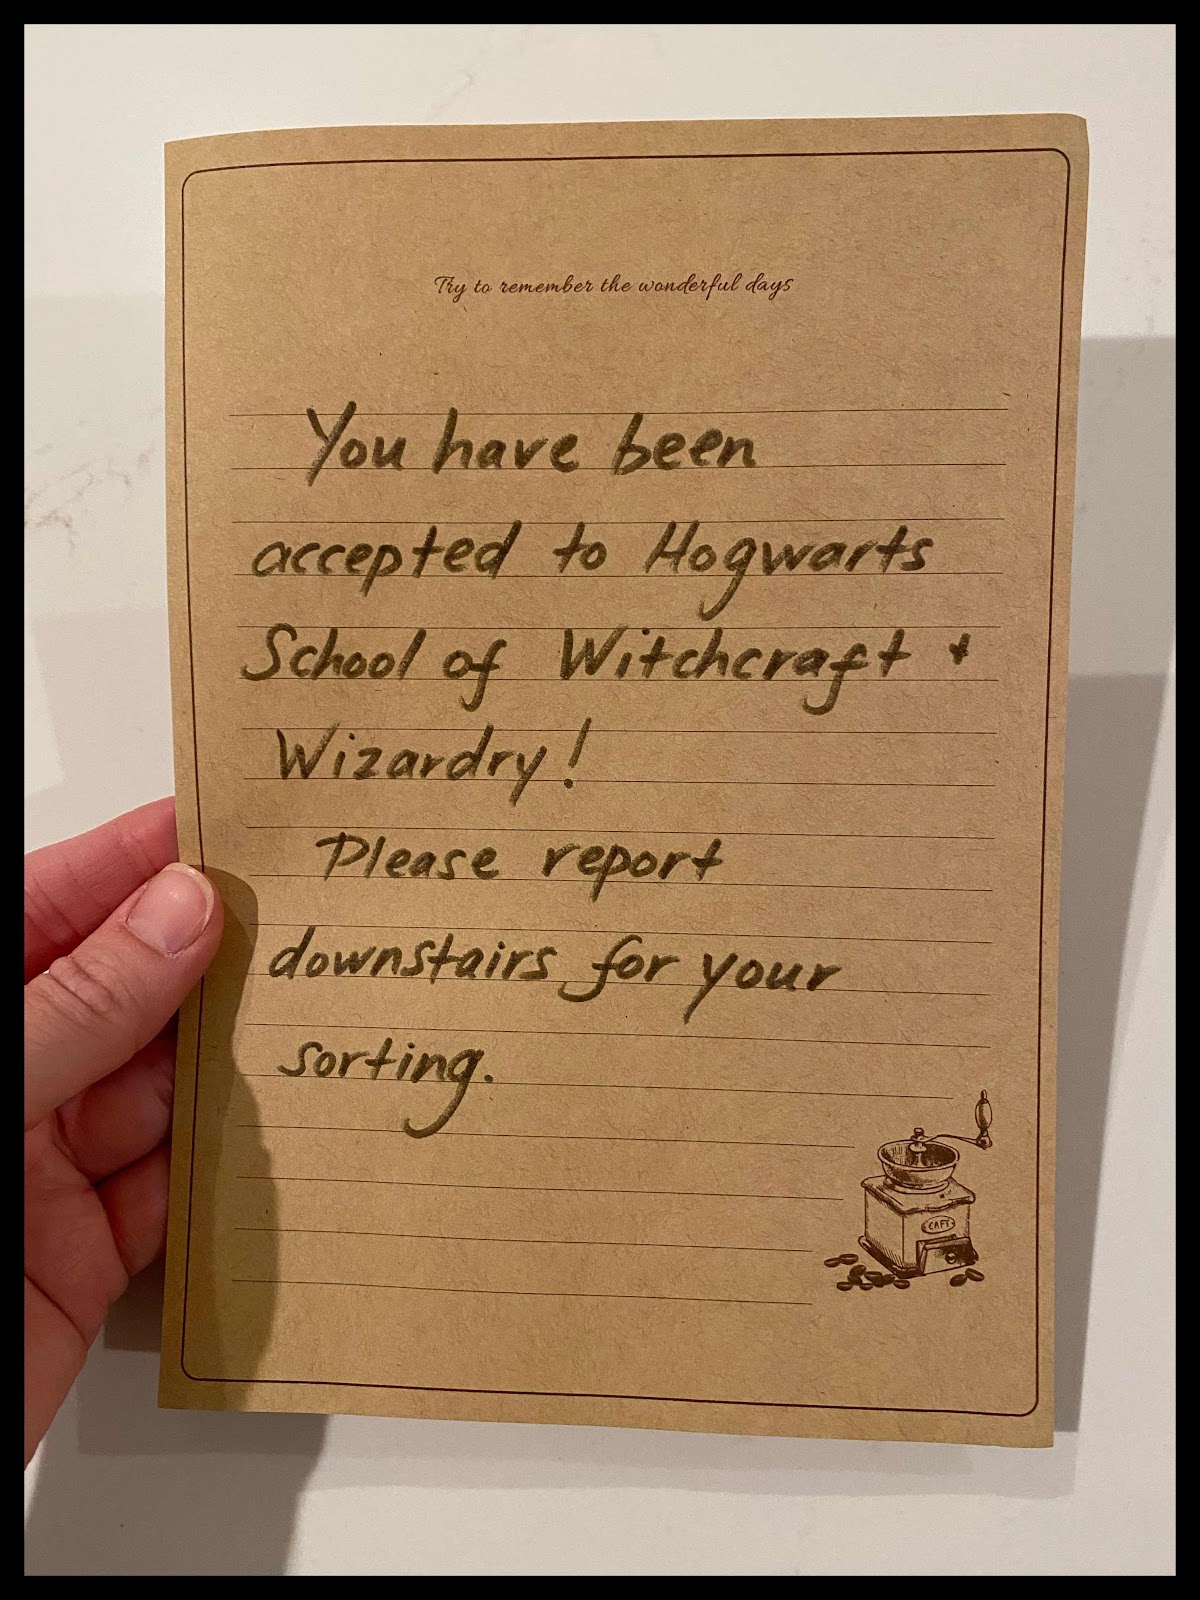 Try to remember the wonderful days
You have been
accepted to Hogwarts
School of Witchcraft +
Wizardry!
Please report
downstairs for your
sorting.
CAFE